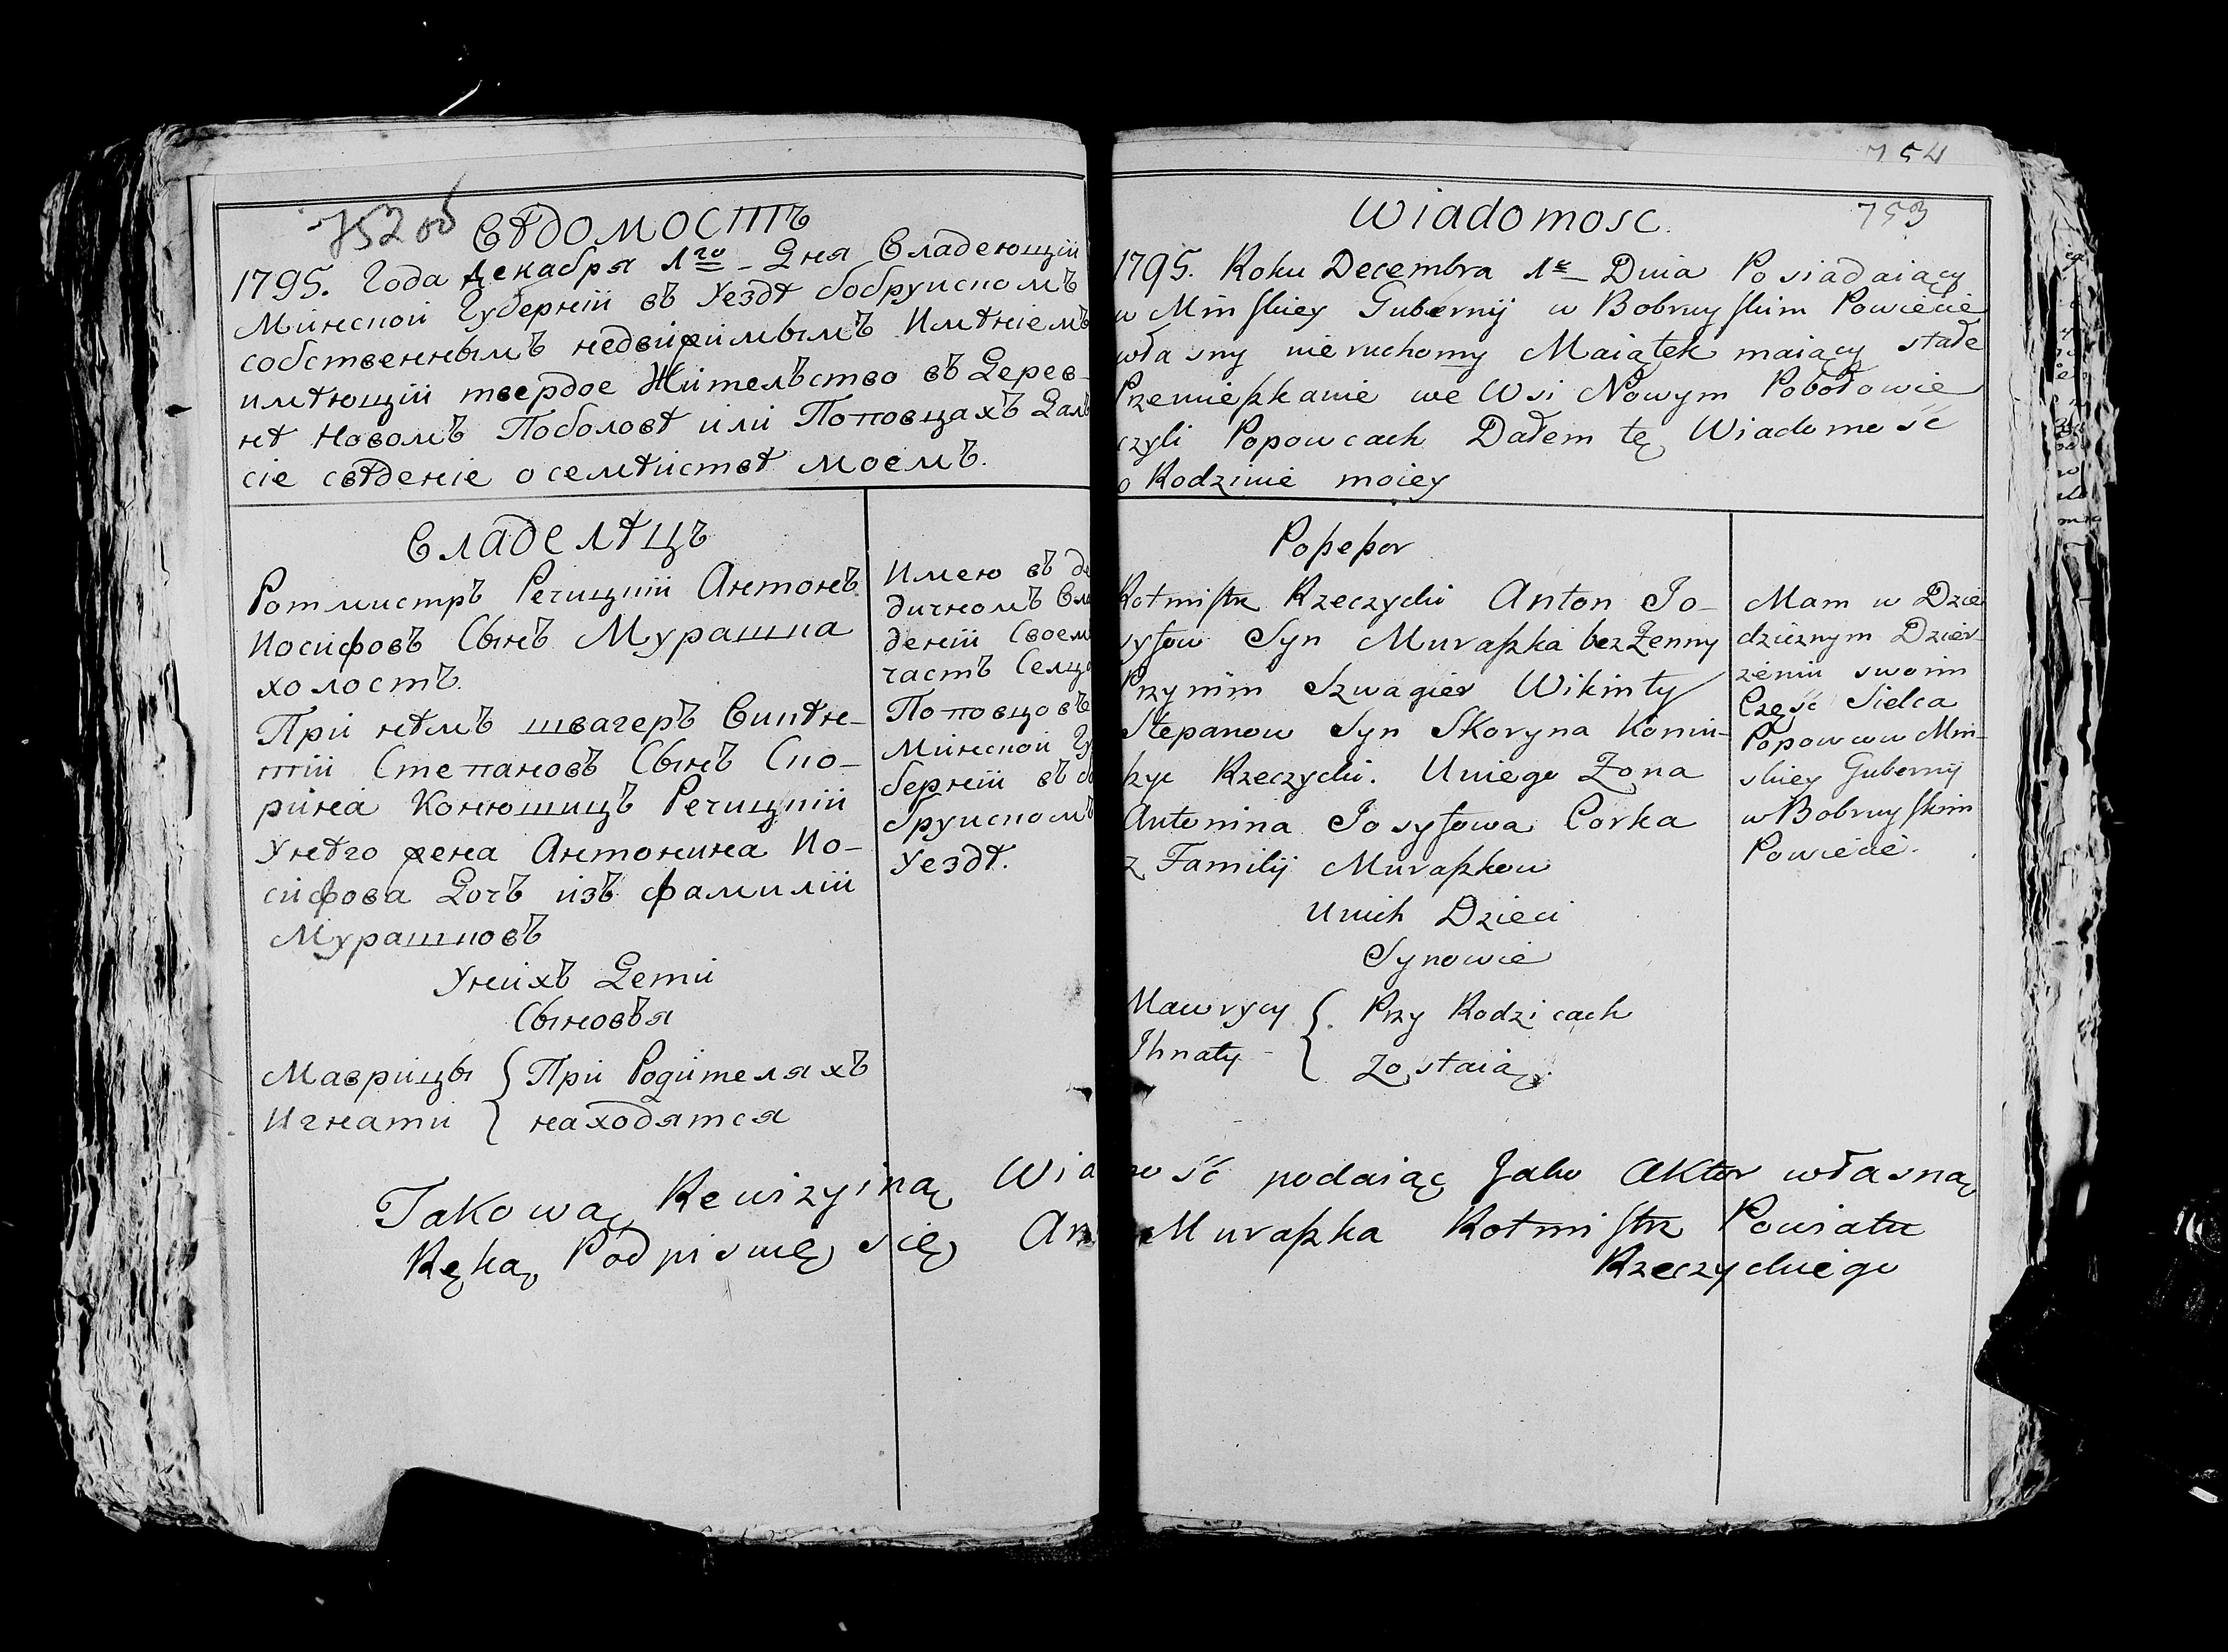 752 об
Вѣдомость
1795. Года Декабря 1го Дня Владеющiй
Минской Губернiи въ Уездѣ бобруискомъ
собственнымъ недвижимымъ Имѣнiемъ
имѣющiи твердое Жительство въ Дерев-
нѣ Новомъ Поболовѣ или Поповцахъ Далъ
сiе свѣденiе о семѣиствѣ моемъ.
Владелѣцъ
Ротмистръ Речицкiи Антонъ
Иосифовъ Сынъ Мурашка
холостъ.
При нѣмъ швагеръ Викѣн-
тiи Степановъ Сынъ Ско-
рина Конюшицъ Речицкiи
Унѣго жена Антонина Ио-
сифова Дочъ изъ фамилiи
Мурашковъ
Унихъ Дети
Сыновъя
Маврицы { При Родителяхъ
Игнати { находятся
Имею въ де
дичномъ Вла
денiи Своем
частъ Селца
Поповцовъ
Минской Гу
бернiи въ бо
бруискомъ
Уездѣ.
754
753
Wiadomosc.
1795. Roku Decembra 1g Dnia Posiadaiący
w Minskiey Gubernij w Bobruyskim Powiecie
własny nieruchomy Maiątek maiący stałe
Przemieszkanie we Wsi Nowym Pobołowie
czyli Popowcach Dałem tę Wiadomość
o Rodzinie moiey
Possessor
Rotmistrz Rzeczycki Anton Jo-
syfow Syn Muraszka bez Zenny
Przynim Szwagier Wikinty
Stepanow Syn Skoryna Koniu-
szyc Rzeczycki. Uniego Zona
Antonina Josyfowa Corka
z Familij Muraszkow
Unich Dzieci
Synowie
Maurycy { Przy Rodzicach
Ihnaty - { Zostaią.
Mam w Dzie
dzicznym Dzier-
żeniu swoim
Część Sielca
Popowcow Min-
skiey Gubernij
w Bobruyskim
Powiecie.
Takową Rewizyiną Wia ość podaiąc Jako Aktor własną
Ręką Podpisuię się An Muraszka Rotmistrz Powiatu
Rzeczyckiego